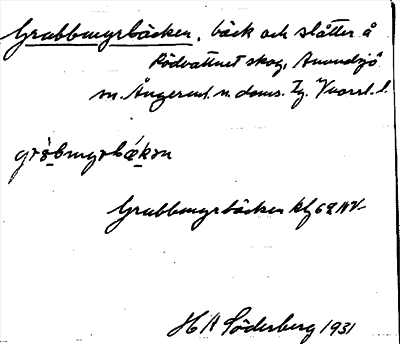 Grubbmyrbäcken, bäck och slåtter å
Rödvattnet skog, Anundsjö
sn. Ångerml. n. doms. Tg. Vvarsl. l.
gròbmyrbǽkən
Grubbmyrbäcken kfg 69 NV
H A Söderberg 1931